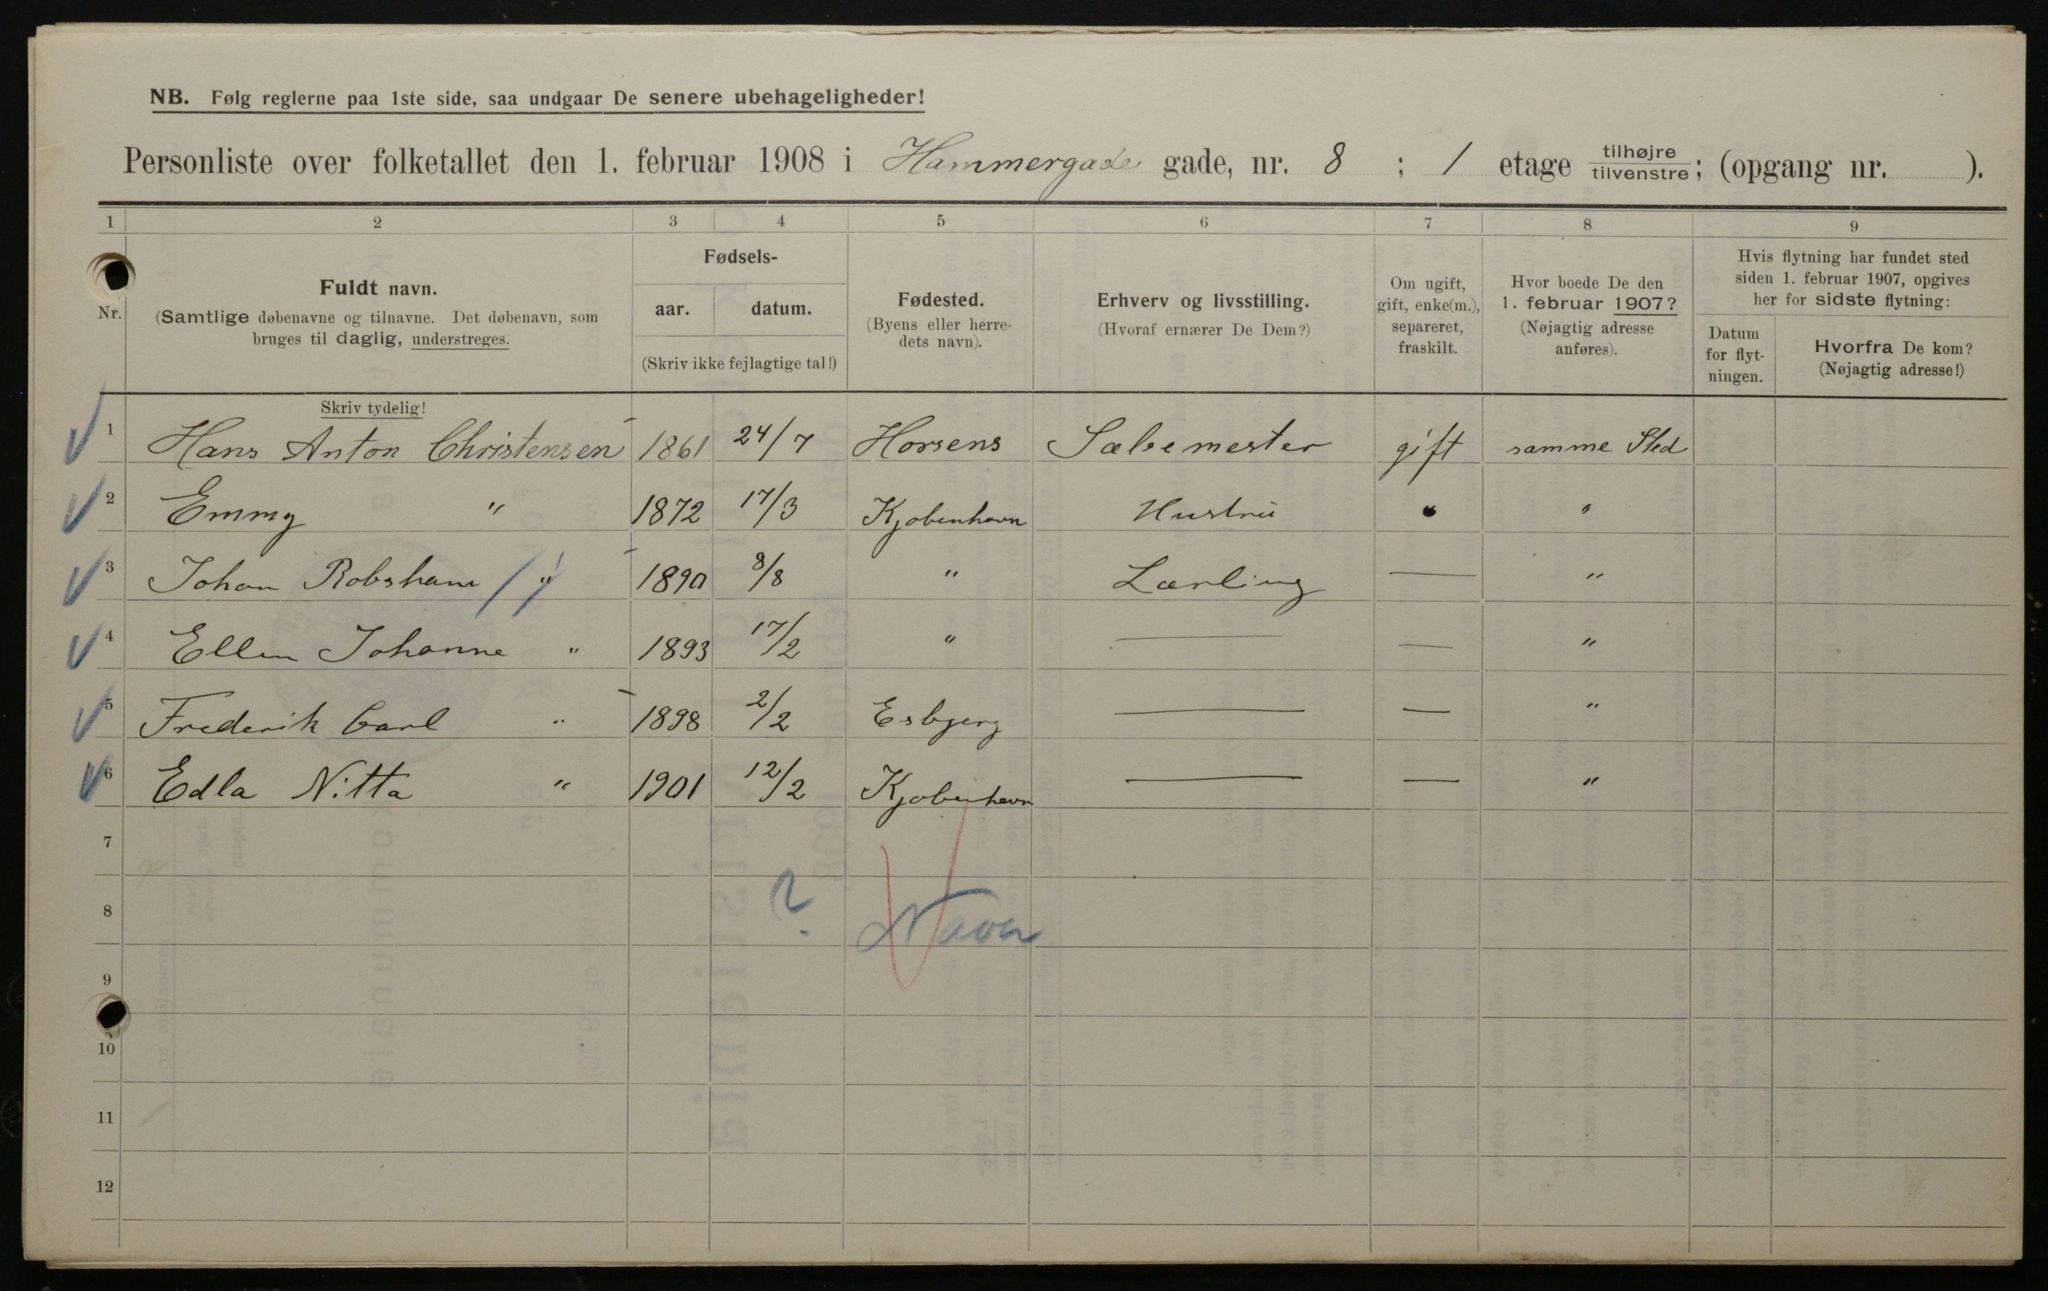 NB. Følg reglerne paa 1ste side, saa undgaar De senere ubehageligheder!
Personliste over folketallet den 1. februar 1908 i Hammergade gade, nr. 8 ; 1 etage tilhøjre tilvenstre; (opgang nr. ).
1 2 3 4 5 6 7 8 9
Nr.
Fuldt navn.
(Samtlige døbenavne og tilnavne. Det døbenavn, som
bruges til daglig, understreges.
Skriv tydelig!
Fødsels-
aar. datum.
(Skriv ikke fejlagtige tal!)
Fødested.
(Byens eller herre-
dets navn).
Erhverv og livsstilling.
(Hvoraf ernærer De Dem?)
Om ugift,
gift, enke(m.),
separeret,
fraskilt.
Hvor boede De den
1. februar 1907?
(Nøjagtig adresse
anføres).
Hvis flytning har fundet sted
siden 1. februar 1907, opgives
her for sidste flytning:
Datum
for flyt-
ningen.
Hvorfra De kom?
(Nøjagtig adresse!)
1 Hans Anton Christensen 1861 24/7 Horsens Sæbemester gift samme Sted
2 Emmy " 1872 17/3 Kjøbenhavn Hustru " "
3 Johan Robsham " 1890 8/8 " Lærling — "
4 Ellen Johanne " 1893 17/2 " — — "
5 Frederik Carl " 1898 2/2 Esbjerg — — "
6 Edla Nitta " 1901 12/2 Kjøbenhavn — — "
7
8 ? Navn
9
10
11
12